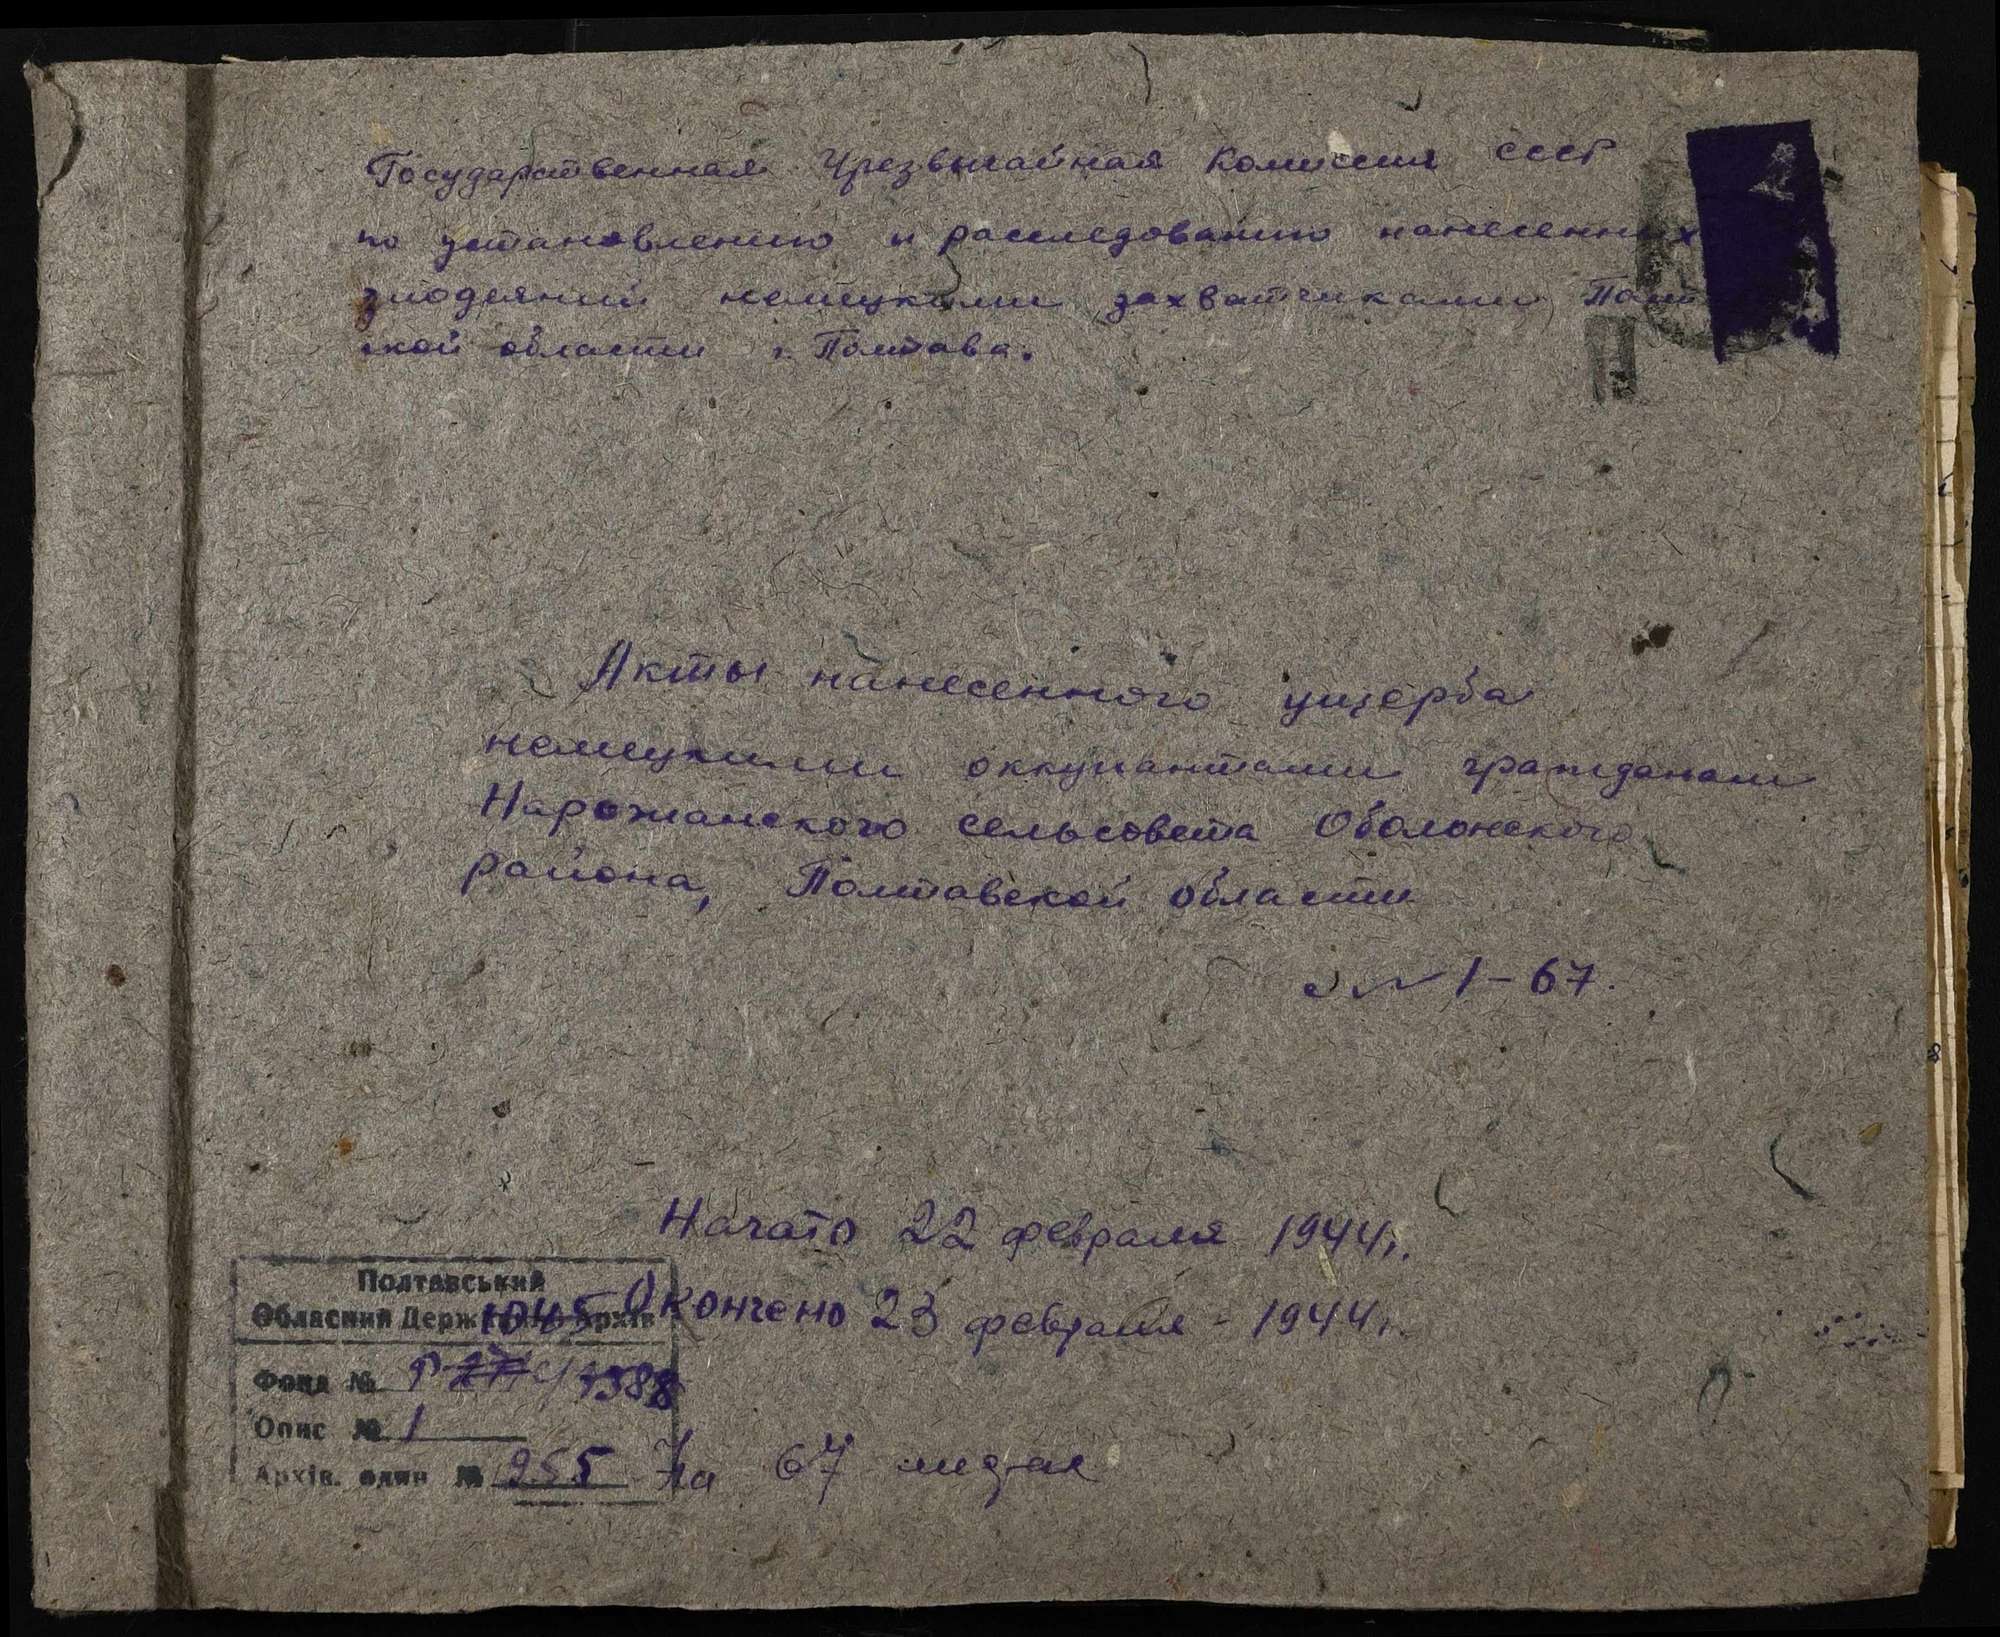 Государственная Чрезвычайная Комиссия СССР
по установлению и расследованию нанесенных
злодеяний немецкими захватчиками Полт
ской области г. Полтава.
Акты нанесенного ущерба
немецкими оккупантами гражданам
Нарожанского сельсовета Оболонского
района, Полтавской области
1-67.
Начато 22 февраля 1944г.
Окончено 23 февраля - 1944г.
На 67 листах
Полтавський
Обласний Державний Архів
1045
Фонд № Р 3388
Опис № 1
Архів. один № 255